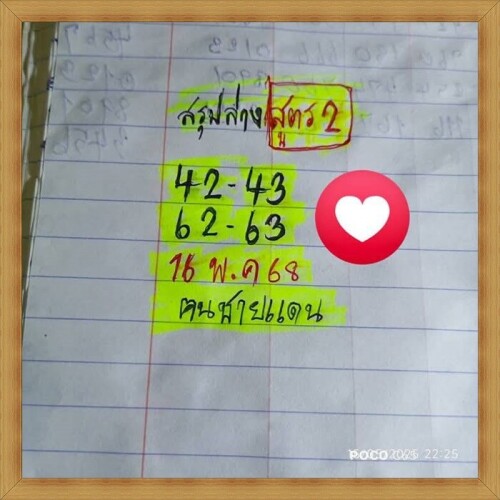 สรุปล่าง สูตร 2
42-43
62-63
16 พ.ค 68
คนชายแดน
POCO C65
22:25